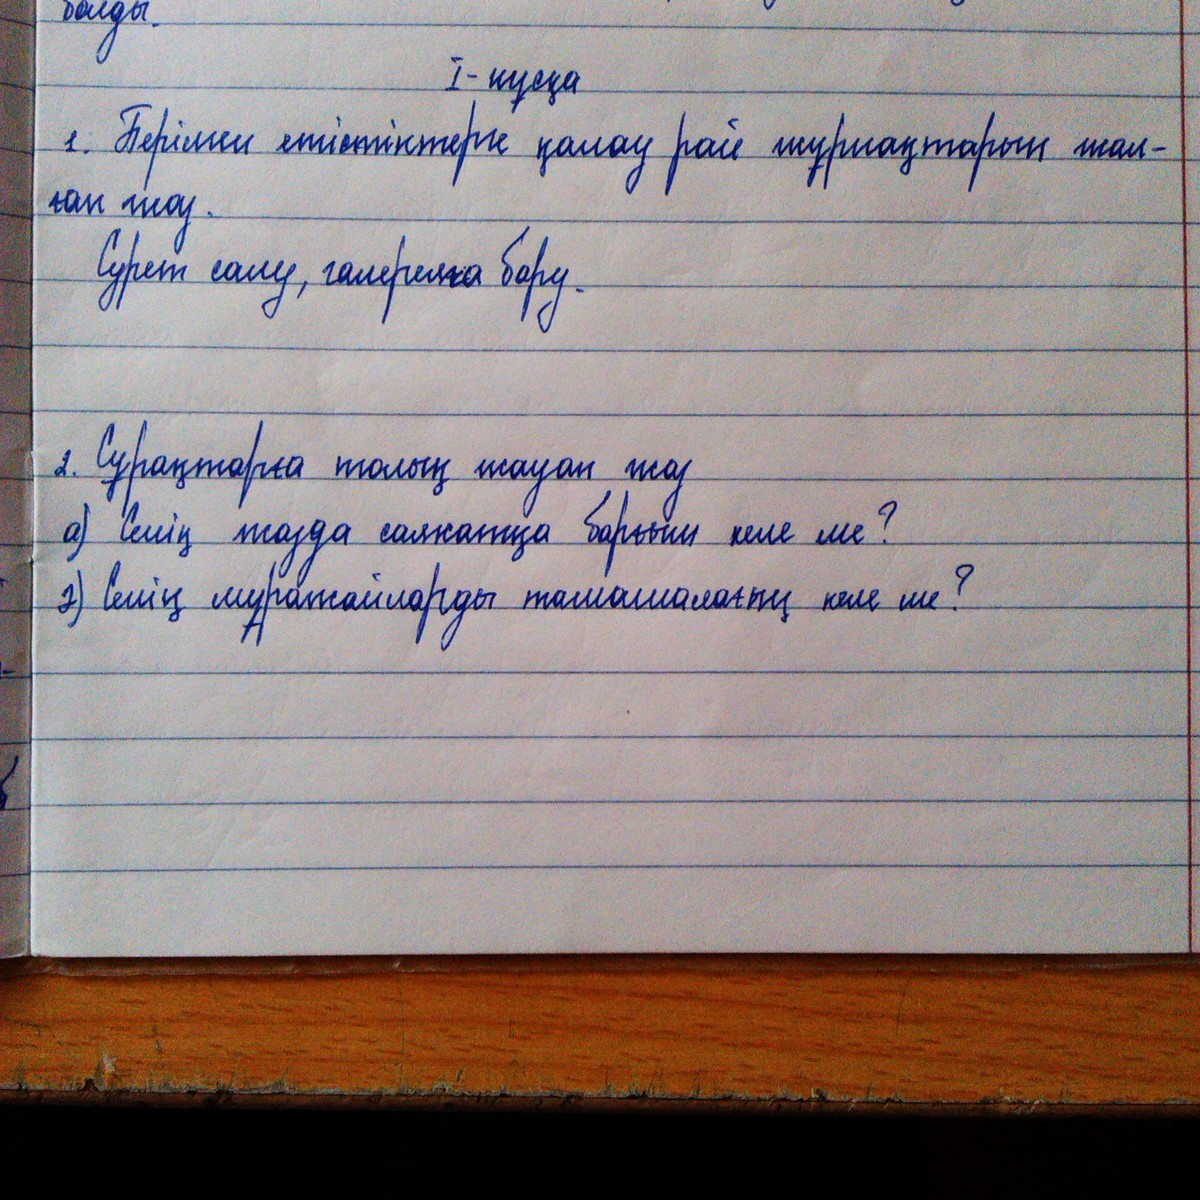 болды.
I- нұсқа
1. Берілген етістіктерге қалау рай жұрнақтарын жал-
ғап жаз.
Сурет салу, галереяға бару.
2. Сұрақтарға толық жауап жаз
а) Сенің жазда саяхатқа барғың келе ме?
ә) Сенің мұражайларды тамашалағың келе ме?